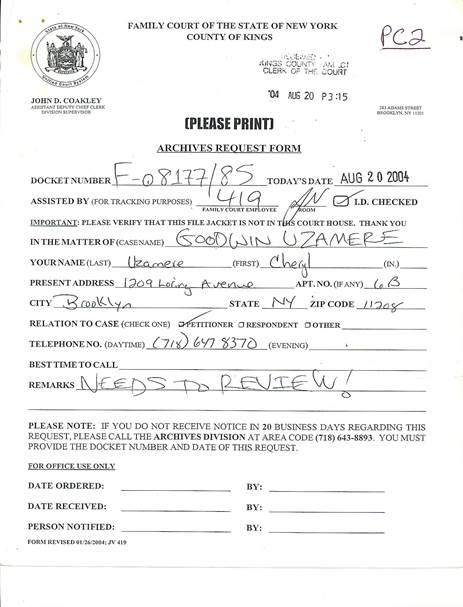 FAMILY COURT OF THE STATE OF NEW YORK
COUNTY OF KINGS
PC2
State of New York
Unified Court System
RECEIVED
KINGS COUNTY FAM. CT
CLERK OF THE COURT
'04 AUG 20 P3:15
JOHN D. COAKLEY
ASSISTANT DEPUTY CHIEF CLERK
DIVISION SUPERVISOR
283 ADAMS STREET
BROOKLYN, NY 11201
(PLEASE PRINT)
ARCHIVES REQUEST FORM
DOCKET NUMBER F-08177/85 TODAY'S DATE AUG 20 2004
ASSISTED BY (FOR TRACKING PURPOSES) 419 I.D. CHECKED
FAMILY COURT EMPLOYEE ROOM
IMPORTANT: PLEASE VERIFY THAT THIS FILE JACKET IS NOT IN THIS COURT HOUSE. THANK YOU
IN THE MATTER OF (CASE NAME) GOODWIN UZAMERE
YOUR NAME (LAST) Uzamere (FIRST) Cheryl (IN.)
PRESENT ADDRESS 1209 Loring Avenue APT. NO. (IF ANY) 6B
CITY Brooklyn STATE NY ZIP CODE 11208
RELATION TO CASE (CHECK ONE) PETITIONER RESPONDENT OTHER
TELEPHONE NO. (DAYTIME) (718) 647 8370 (EVENING)
BEST TIME TO CALL
REMARKS NEEDS TO REVIEW!
PLEASE NOTE: IF YOU DO NOT RECEIVE NOTICE IN 20 BUSINESS DAYS REGARDING THIS
REQUEST, PLEASE CALL THE ARCHIVES DIVISION AT AREA CODE (718) 643-8893. YOU MUST
PROVIDE THE DOCKET NUMBER AND DATE OF THIS REQUEST.
FOR OFFICE USE ONLY
DATE ORDERED: BY:
DATE RECEIVED: BY:
PERSON NOTIFIED: BY:
FORM REVISED 01/26/2004; JV 419